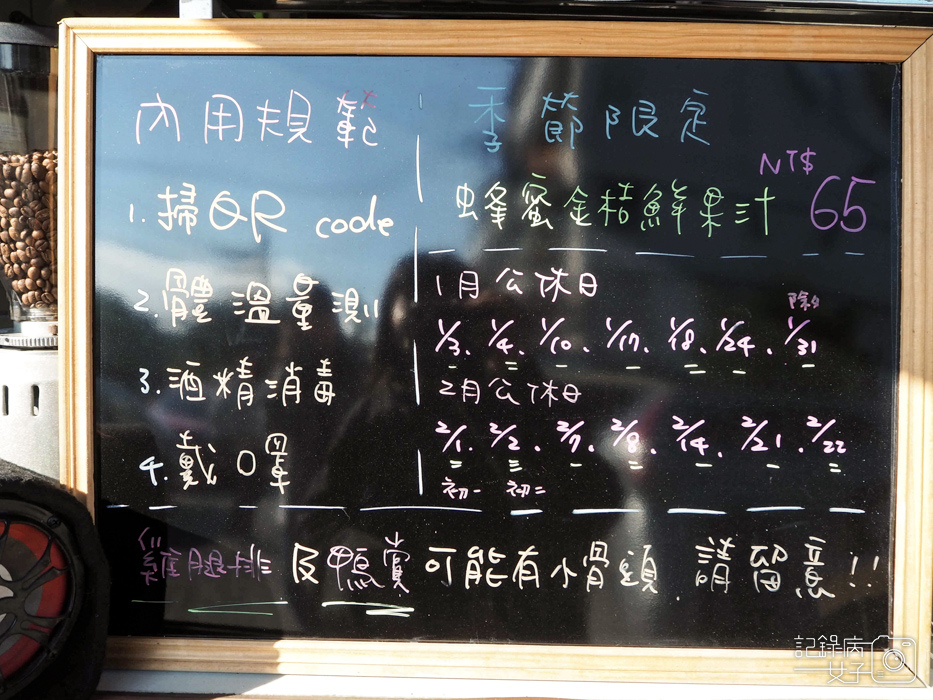 內用規範
1.掃QR code
2.體溫量測
3.酒精消毒
4.戴口罩
季節限定
NT$
蜂蜜金桔鮮果汁 65
1月公休日
除夕
1/3、1/4、1/10、1/17、1/18、1/24、1/31
2月公休日
2/1、2/2、2/7、2/8、2/14、2/21、2/22
初一 初二
雞腿排及鴨賞可能有小骨頭，請留意!!
記錄病
女子